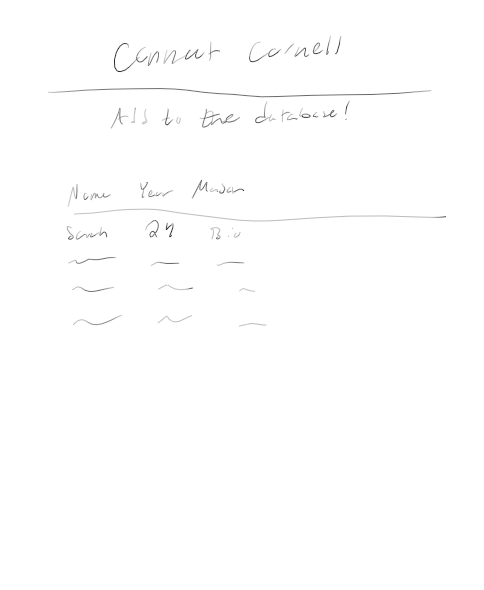 Connect Cornell
Add to the database!
Name Year
Sarah 24 Bio